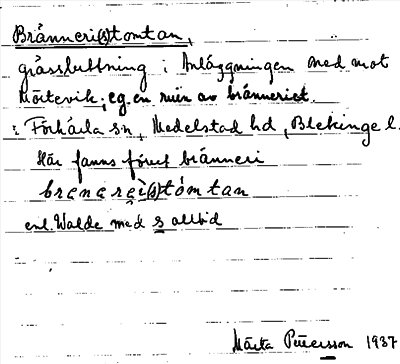 Bränneri(s)tomtan,
gräsbuttning i Anläggningen ned mot
eg. en ruin av bränneriet.
i Förkärla sn, Medelstad hd, Blekinge l.
Här fanns förut bränneri
brenerei(s)tomtan
enl. Walde med s alltid
Märta Petersson 1937